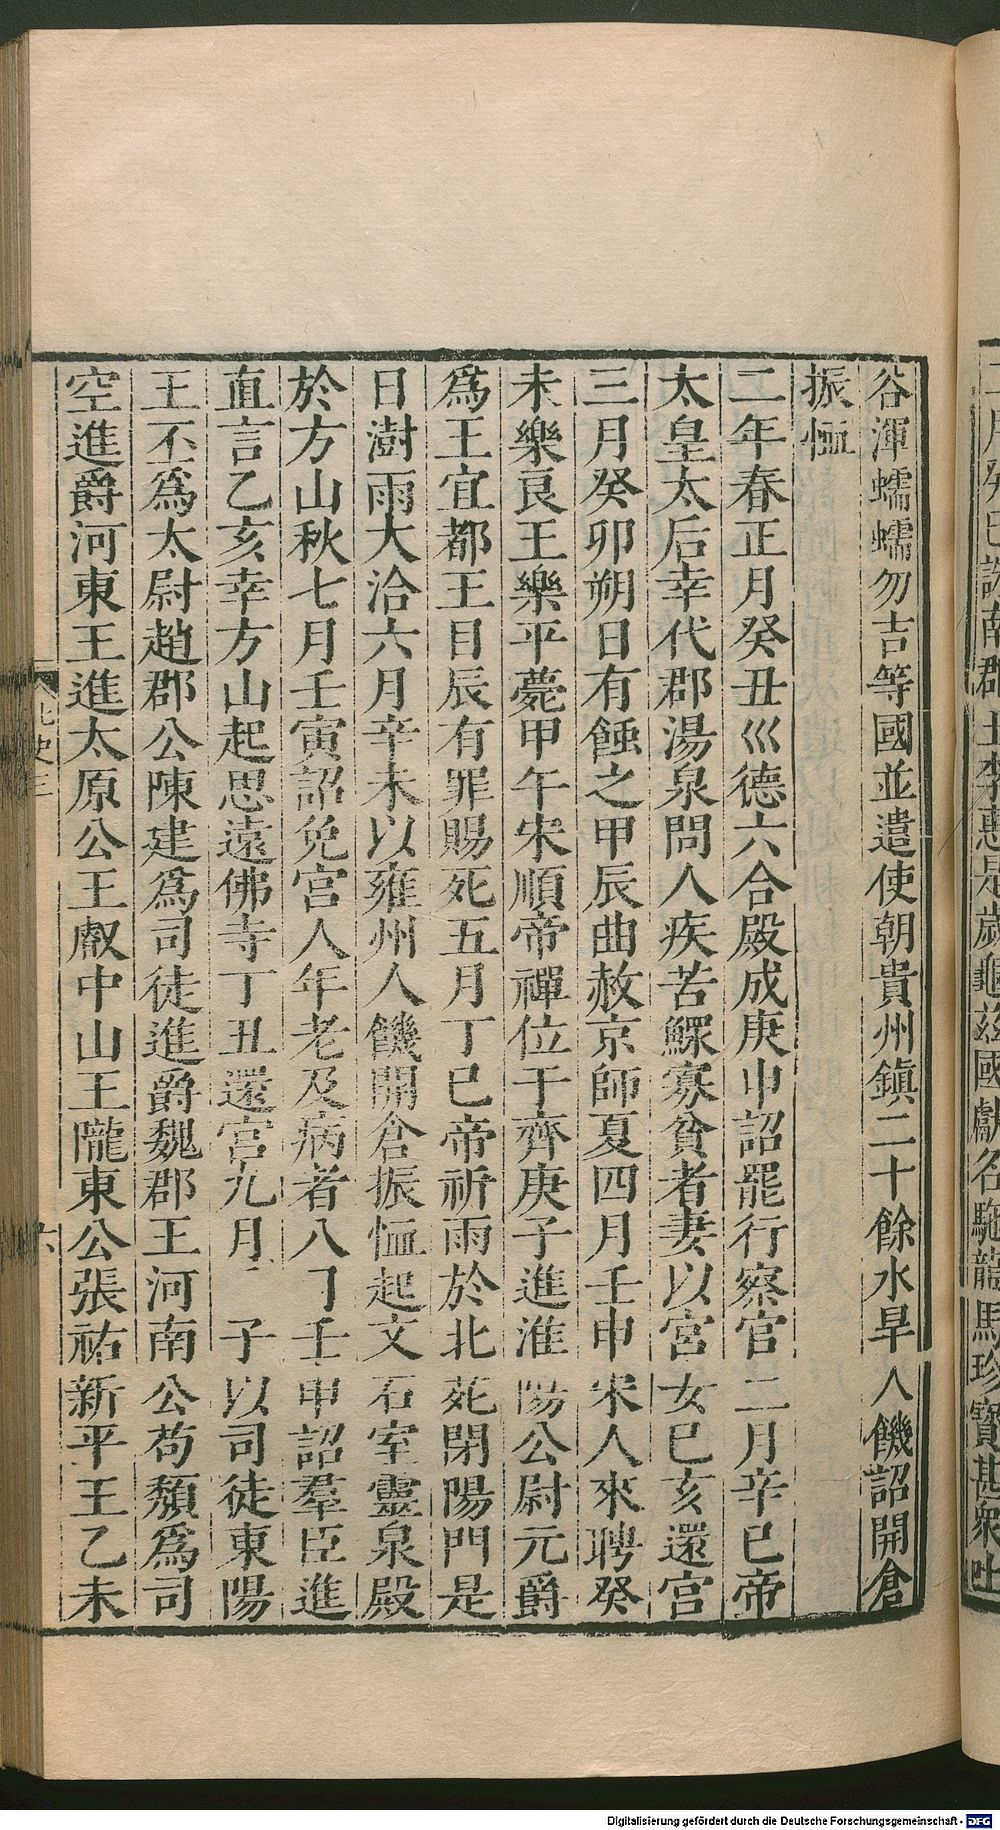 谷渾蠕蠕勿吉等國並遣使朝貴州鎮二十餘水旱人饑詔開倉
振恤
二年春正月癸丑巛德六合殿成庚申詔罷行察官二月辛巳帝
太皇太后幸代郡湯泉問人疾苦鰥寡貧者妻以宮女巳亥還宮
三月癸卯朔日有蝕之甲辰曲赦京師夏四月壬申宋人來聘癸
未樂良王樂平薨甲午宋順帝禪位于齊庚子進淮陽公尉元爵
爲王宜都王目辰有罪賜死五月丁巳帝祈雨於北苑閉陽門是
日澍雨大洽六月辛未以雍州人饑開倉振恤起文石室靈泉殿
於方山秋七月壬寅詔免宮人年老及病者八丁壬申詔羣臣進
直言乙亥幸方山起思遠佛寺丁丑還宮九月子以司徒東陽
王丕爲太尉趙郡公陳建爲司徒進爵魏郡王河南公苟頹爲司
空進爵河東王進太原公王叡中山王隴東公張祐新平王乙未
北史三
六
Digitalisierung gefördert durch die Deutsche Forschungsgemeinschaft - DFG